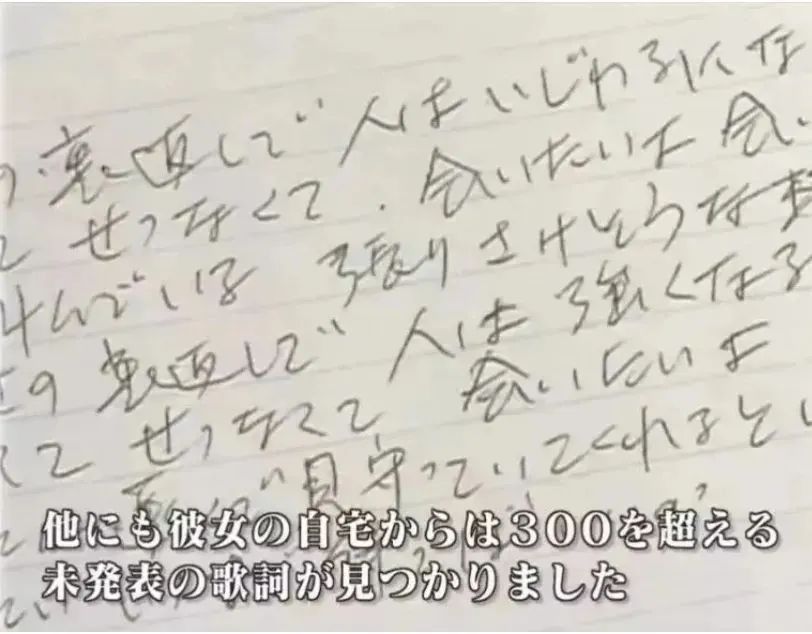 の裏返しで 人はいじわるにな
て せつなくて 会いたいよ 会い
叫んでいる 張りさけそうな
の裏返しで 人は強くなる
くて せつなくて 会いたいよ
で見守っていてくれるとい
他にも彼女の自宅からは300を超える
未発表の歌詞が見つかりました